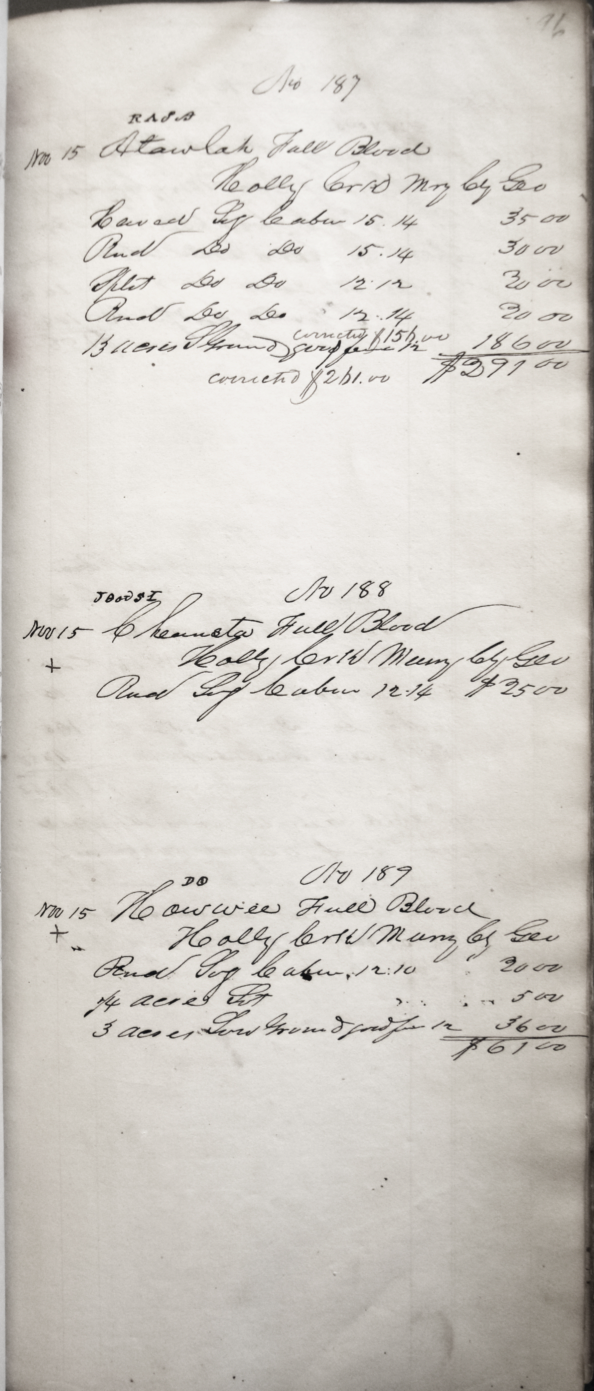 96
No 187
Nov 15 Atawlah Full Blood
Holly Crk Mry Cty Geo
Hewed Log Cabin 15.14 35 00
Rnd Do Do 15.14 30 00
Split Do Do 12.12 20 00
Rnd Do Do 12.14 20 00
corrected $156.00
13 acres Ground good fence 12 186 00
corrected $261.00 $291 00
No 188
Nov 15 Full Blood
+ Holly Crk Murry Cty Geo
Rnd Log Cabin 12.14 $25 00
DO No 189
Nov 15 Howwee Full Blood
+ Holly Crk Murry Cty Geo
Rnd Log Cabin 12.10 20 00
1/4 acres Lot 5 00
3 acres Low Ground good fen 12 36 00
$61 00